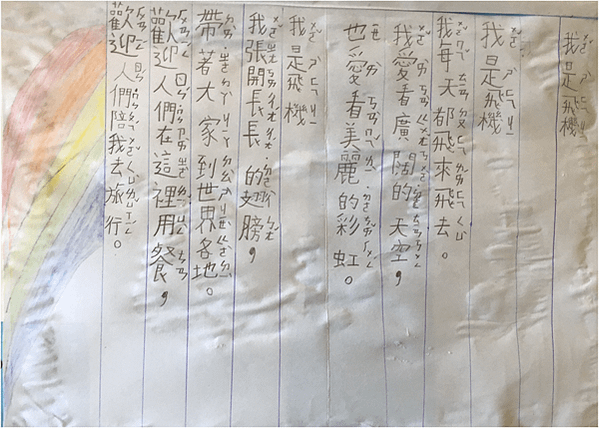 我是飛機
我是飛機
我每天都飛來飛去。
我愛看廣闊的天空，
也愛看美麗的彩虹。
我是飛機
我張開長長的翅膀，
帶著大家到世界各地。
歡迎人們在這裡用餐，
歡迎人們陪我去旅行。